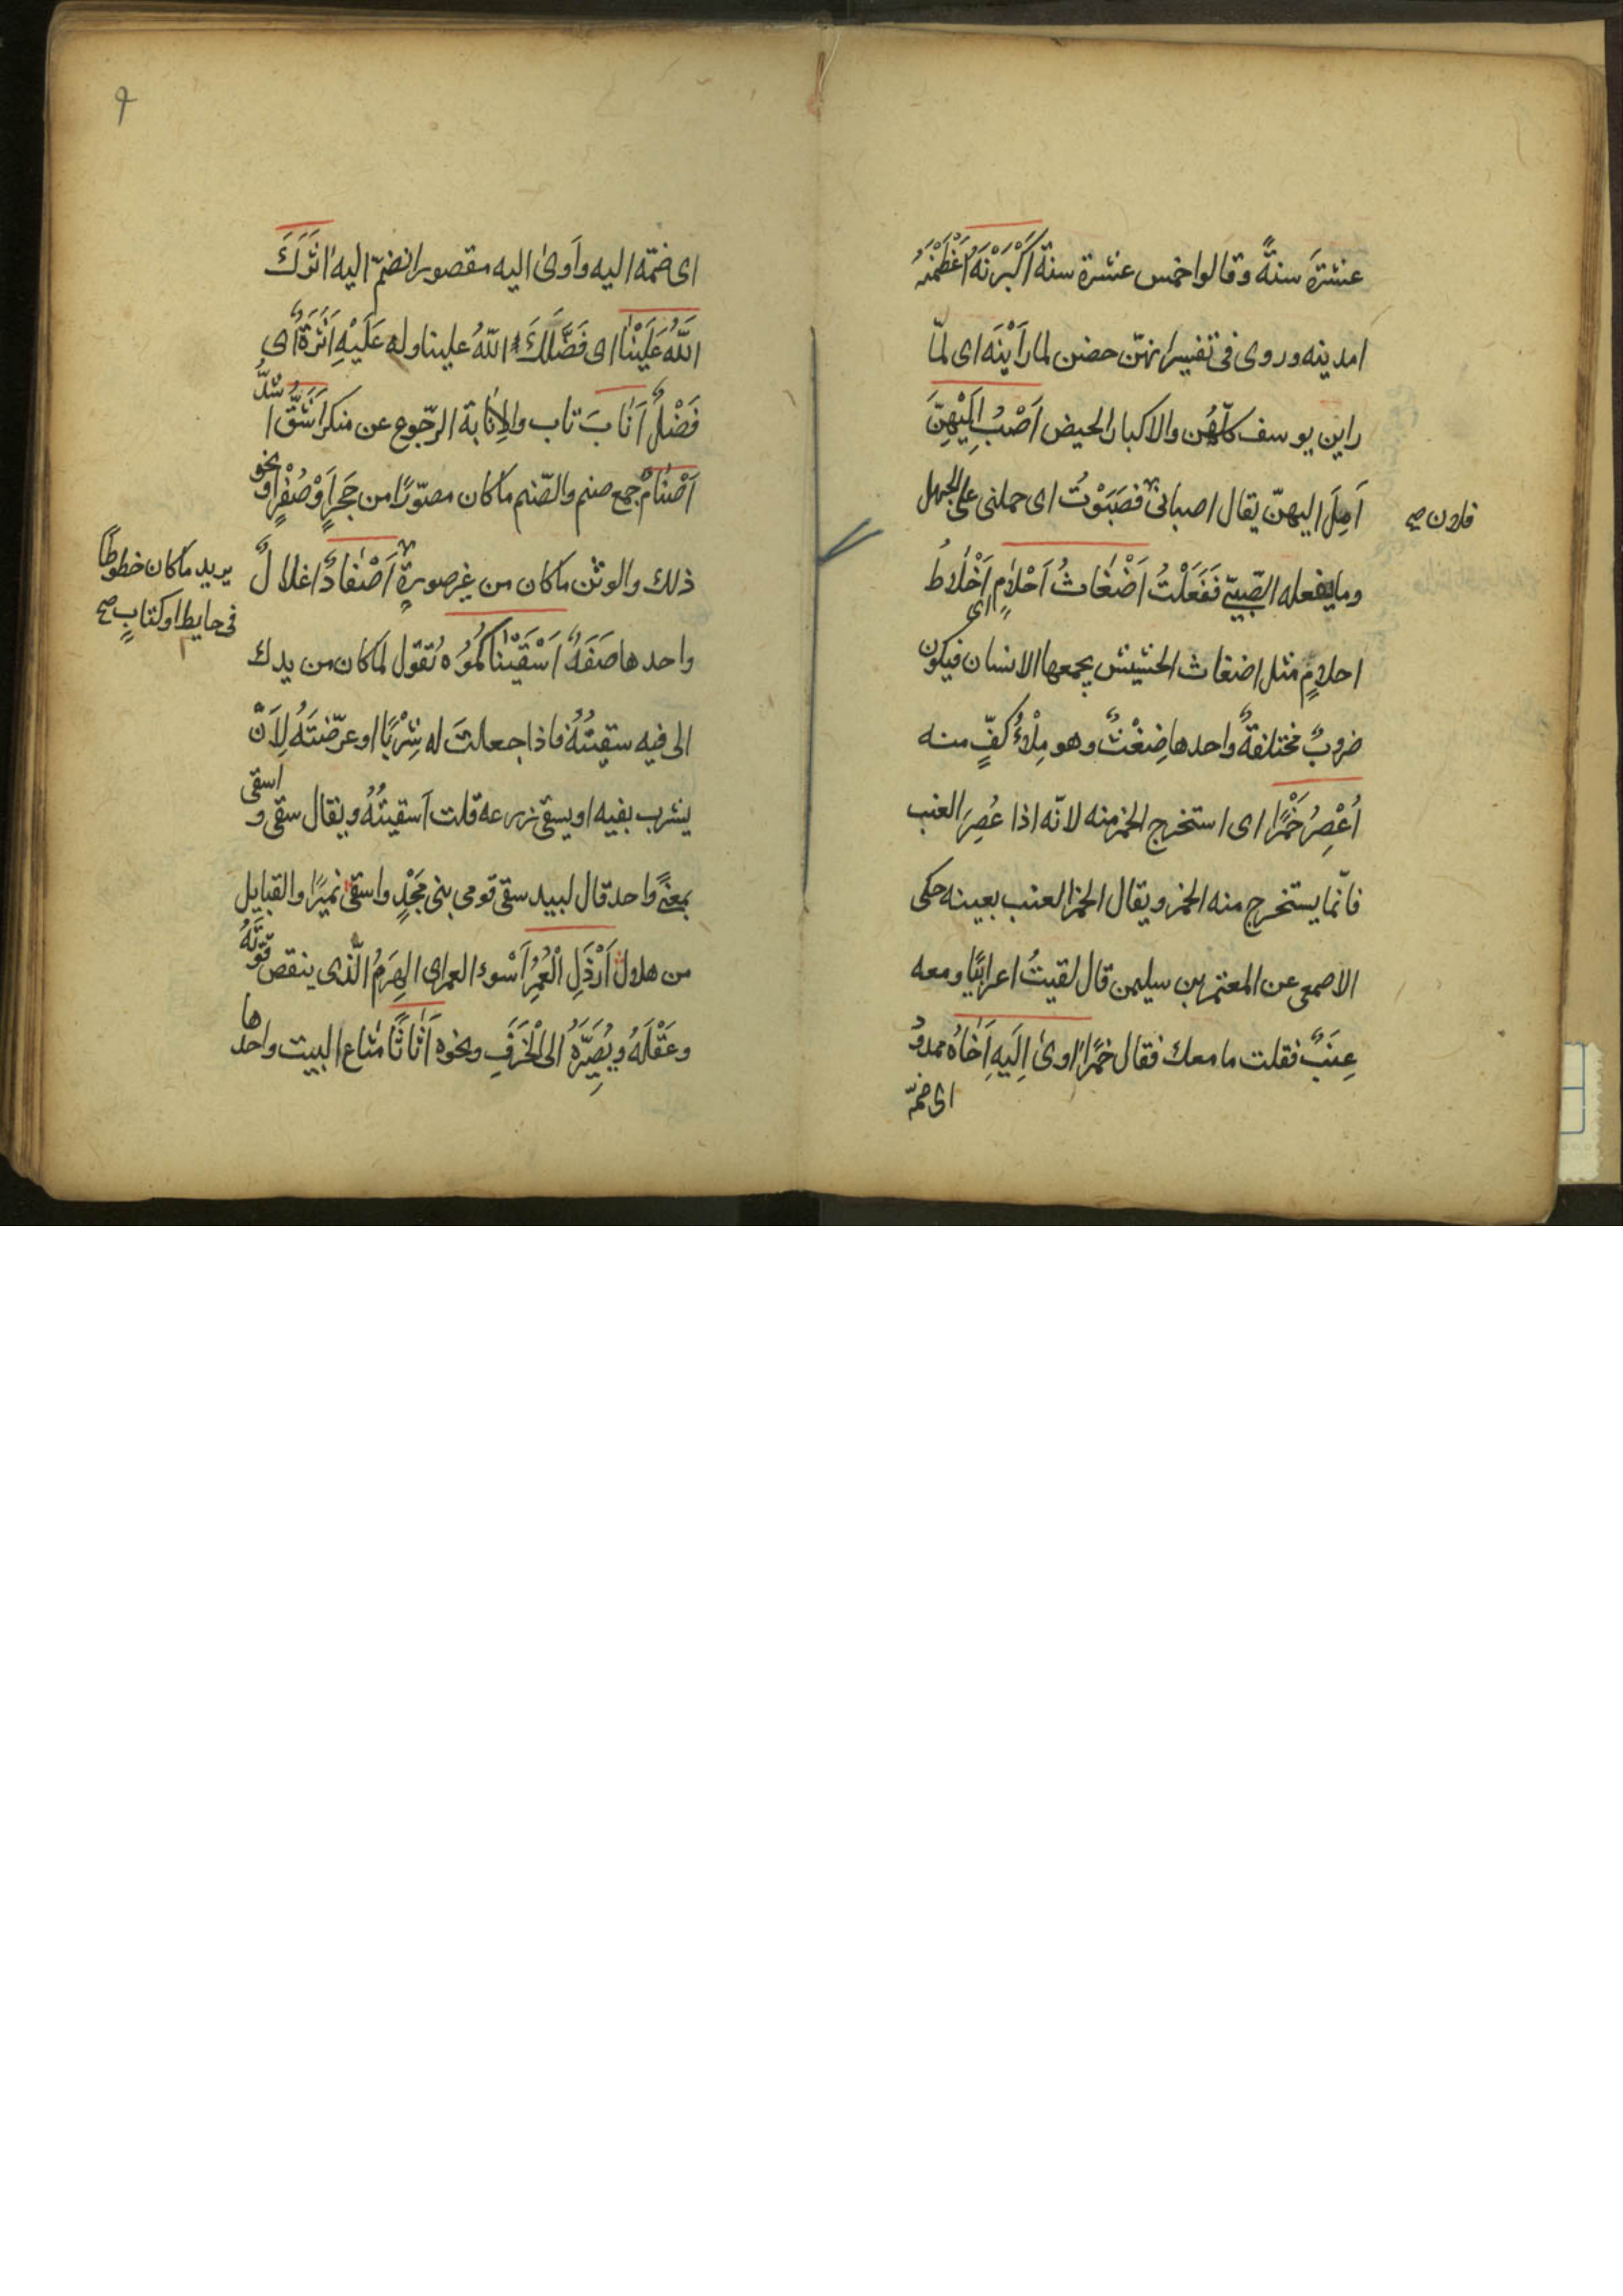 عشرَة سنةً وقالوا خمس عشرة سنة اَكْبَرْنَهُ اَعْظَمْنَهُ
امدينه وروى فى تفسير انهنّ حضن لما رَاَيْنَه اى لمّا
راين يوسف كلّهُن والاكبار الحيض اَصْبُ اِلَيْهِنَّ
اَمِلْ اليهنّ يقال اصبانى فصَبَوْتُ اى حملنى على الجهل
فلان صح
وما يفعله الصّبىّ فَفَعَلْتُ اَضْغَاثُ اَحْلامٍ اى اَخْلاطُ
احلامٍ مثل اضغاث الحشيش يجمعها الانسان فيكون
ضروبٌ مختلفةٌ واحدها ضِغْثٌ وهو مِلْاُ كفٍّ منه
اَعْصِرُ خَمْرًا اى استخرج الخمر منه لانّه اذا عُصِرَ العنب
فانّما يستخرج منه الخمر ويقال الخمر العنب بعينه حكى
الاصمعى عن المعتمر بن سليمن قال لقيتُ اعرابيًّا ومعه
عِنَبٌ فقلت ما معك فقال خمرًا اوىٰ اِلَيهِ اَخَاهُ ممدودٌ
اى ضمّه
اى ضمّه اليه واَوىٰ اليه مقصور انضمّ اليه اثَرَكَ
اللّٰهُ عَلَيْنَا اى فَضَّلَكَ اللّهُ علينا وله عَلَيْهِ اَثَرَةٌ اى
فَضْلٌ اَنَابَ تاب والاِنَابة الرّجوع عن منكر اَشَقُّ اشدُّ
اَصْنَامٌ جمع صنم والصّنم ما كان مصوّرًا من حَجَرٍ اَوْ صُفْرٍ او نحو
ذلك والوثن ما كان من غير صورةٍ اَصْفَادٌ اغلالٌ
يريد ما كان خطوطًا
فى حايط او كتابٍ صح
واحدها صَفَدٌ اَسْقَيْنَاكُمُوُهُ تقول لما كان من يدك
الى فيه سقيتُهُ فاذا جعلتَ له شِرْبًا او عرّضتَهُ لِاَنْ
يشرب بفيه او يسقى زرعه قلت اَسقيتُهُ ويقال سقى و اسقى
بمعنًى واحد قال لبيد سقى قومى بنى مَجْدٍ واسقى نميرًا والقبايل
من هلال اَرْذَلِ الْعُمُرِ اَسْوء العمر اى الهَرَمُ الّذى ينقص قوّتَهُ
وعَقْلَهُ ويُصَيِّرَهُ الى الْخَرَفِ ونحوه اَثَاثًا متاع البيت واحدها